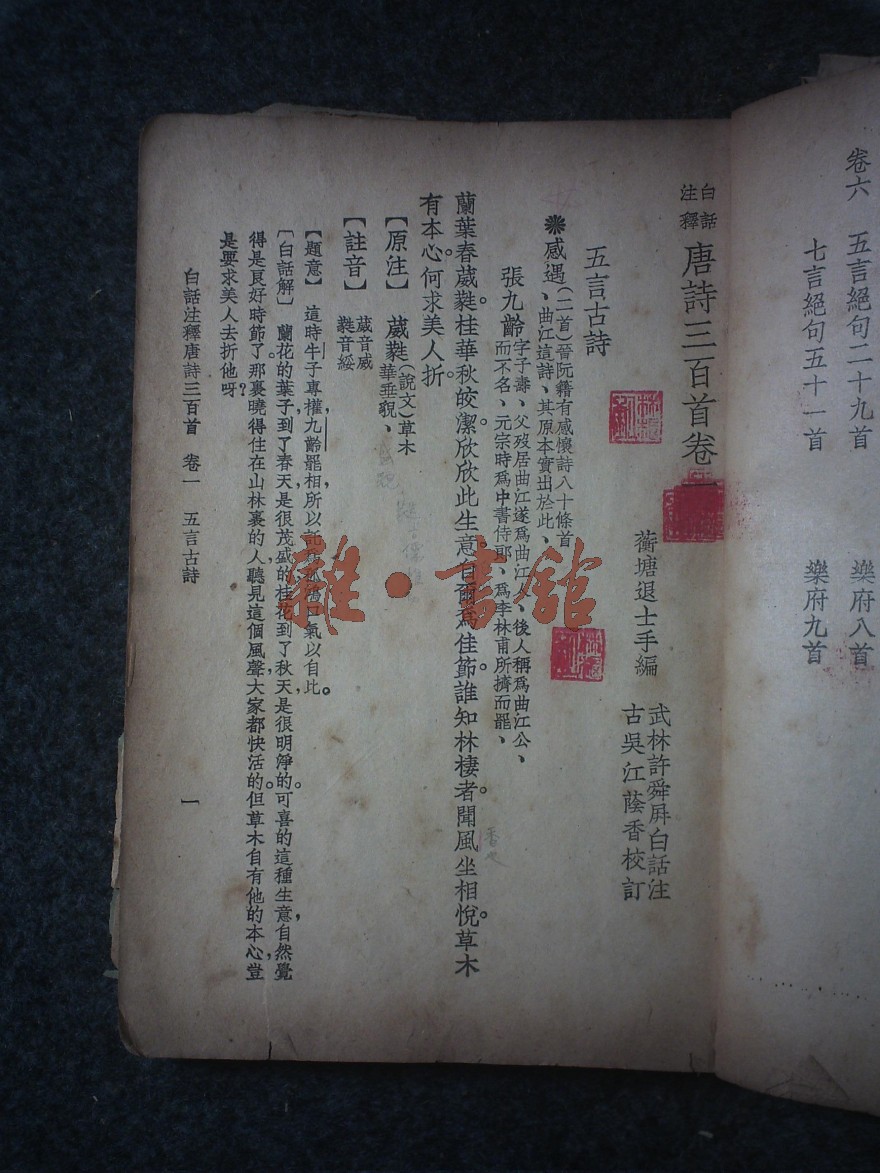 卷六　五言絕句二十九首　樂府八首
七言絕句五十一首　樂府九首
白話注釋　唐詩三百首卷一
蘅塘退士手編
武林許舜屛白話注
古吳江蔭香校訂
五言古詩
感遇(二首)晉阮籍有感懷詩八十條首
、曲江這詩、其原本實出於此、
張九齡字子壽、父歿居曲江遂爲曲江、後人稱爲曲江公、
而不名、元宗時爲中書侍耶、爲李林甫所擠而罷、
蘭葉春葳蕤。桂華秋皎潔。欣欣此生意。自爾爲佳節。誰知林棲者。聞風坐相悅。草木
有本心。何求美人折。
【原注】　葳蕤(說文)草木
華垂貌、
【註音】　葳音威
蕤音綏
【題意】　這時牛子專權、九齡罷相、所以託爲孤鴻口氣以自比。
〔白話解〕　蘭花的葉子、到了春天、是很茂盛的、桂花到了秋天、是很明淨的。可喜的這種生意、自然覺
得是良好時節了。那裏曉得住在山林裏的人、聽見這個風聲、大家都快活的。但草木自有他的本心、豈
是要求美人去折他呀?
白話注釋唐詩三百首　卷一　五言古詩　一
雜・書館